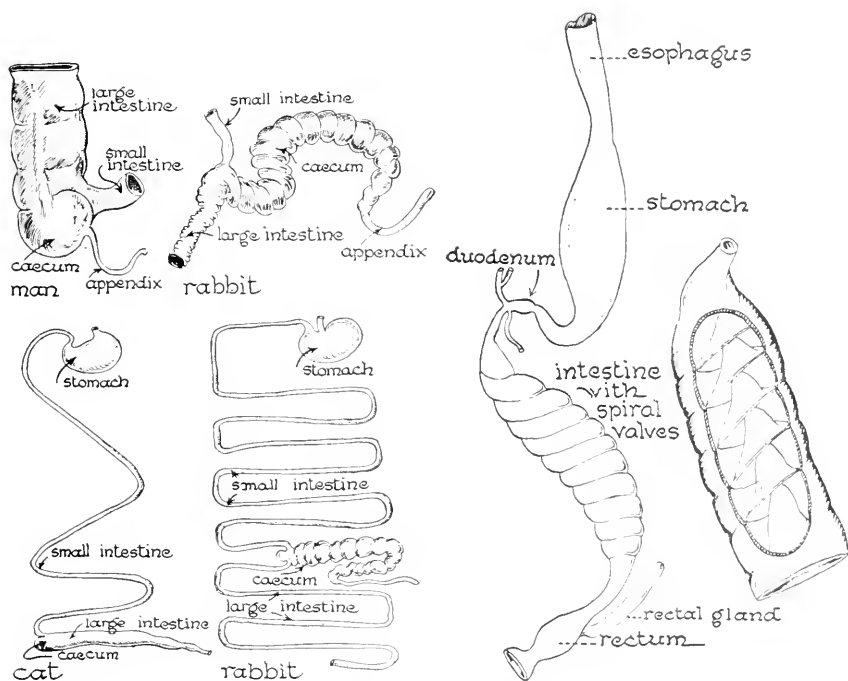 large
intestine
small
intestine
caecum
appendix
man
small intestine
caecum
large intestine
appendix
rabbit
stomach
small intestine
large intestine
caecum
cat
stomach
small intestine
caecum
large intestine
rabbit
esophagus
stomach
duodenum
intestine
with
spiral
valves
rectal gland
rectum